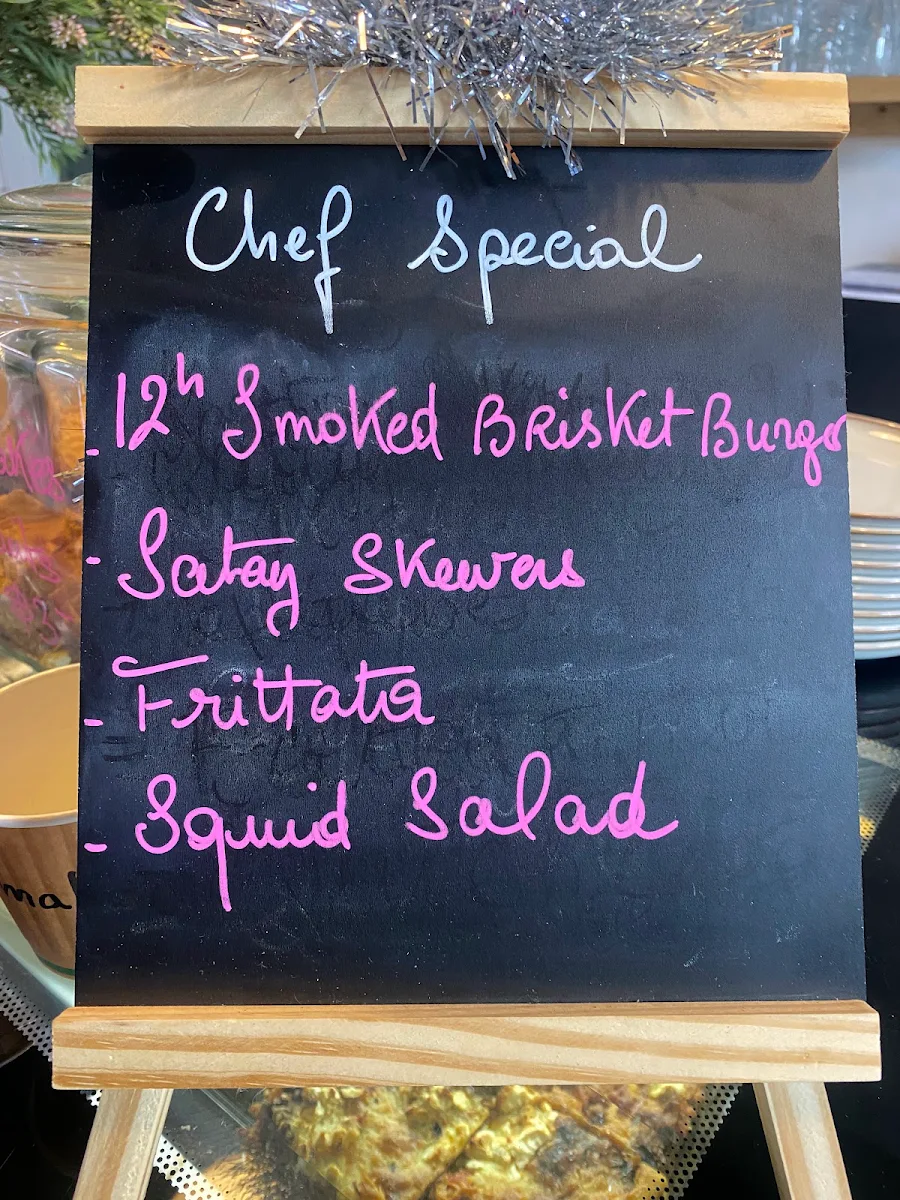 Chef Special
- 12h Smoked Brisket Burger
- Satay Skewers
- Frittata
- Squid Salad